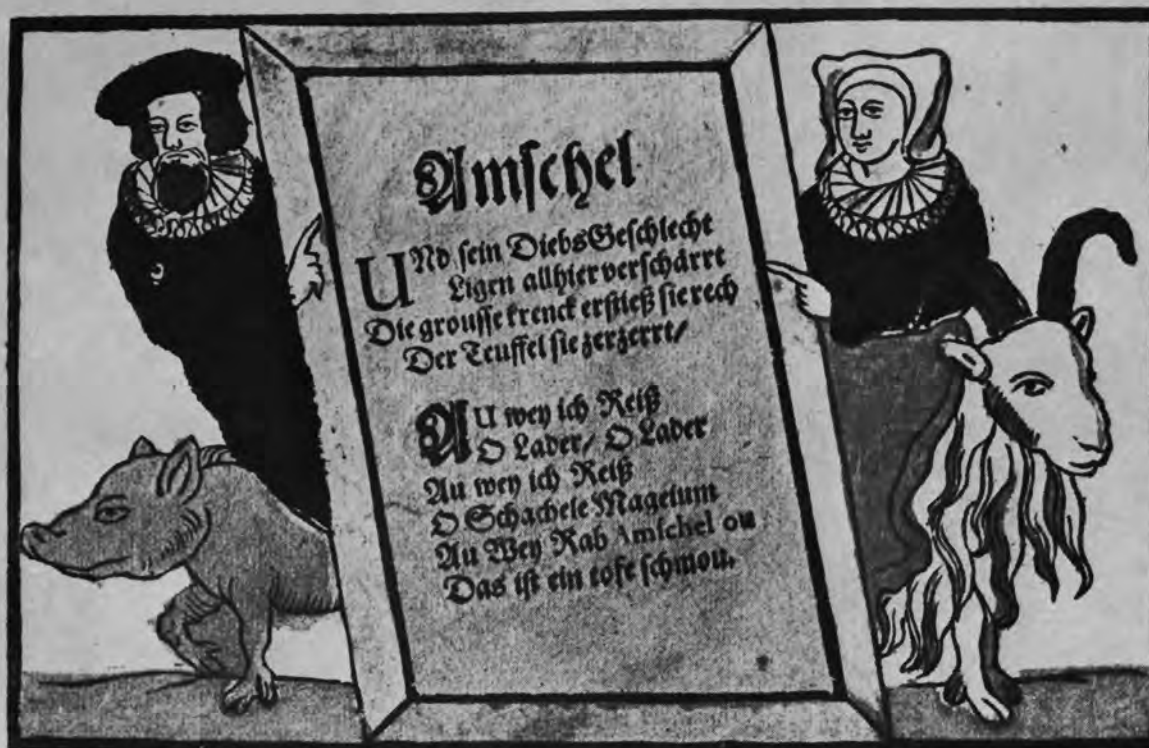 Amschel
UNd sein DiebsGeschlecht
Ligen allhier verschärrt
Die grousse krenck erstieß sie rech
Der Teuffel sie zerzerrt/
AU wey ich Reiß
O Lader/ O Lader
Au wey ich Reiß
O Schachele Magelum
Au Wey Rab Amschel ou
Das ist ein tofe schmou.